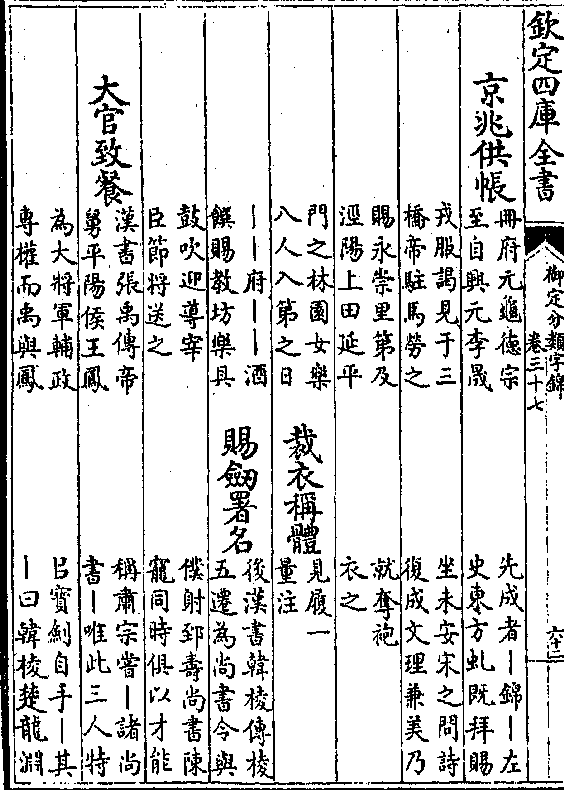 欽定四庫全書
御定分類字錦
卷三十七
六十二
京兆供帳
冊府元龜德宗
至自興元李晟
戎服謁見于三
橋帝駐馬勞之
賜永崇里第及
涇陽上田延平
門之林園女樂
八人入第之日
丨丨府丨丨酒
饌賜教坊樂具
鼓吹迎導宰
臣節將送之
大官致餐
漢書張禹傳帝
舅平陽侯王鳳
為大將軍輔政
專權而禹與鳳
先成者丨錦丨左
史東方虬既拜賜
坐未安宋之問詩
復成文理兼美乃
就奪袍
衣之
裁衣稱體
見履一
量注
賜劔署名
後漢書韓棱傳棱
五遷為尚書令與
僕射郅壽尚書陳
寵同時俱以才能
稱肅宗嘗丨諸尚
書丨唯此三人特
㠯寶劔自手丨其
丨曰韓棱楚龍淵